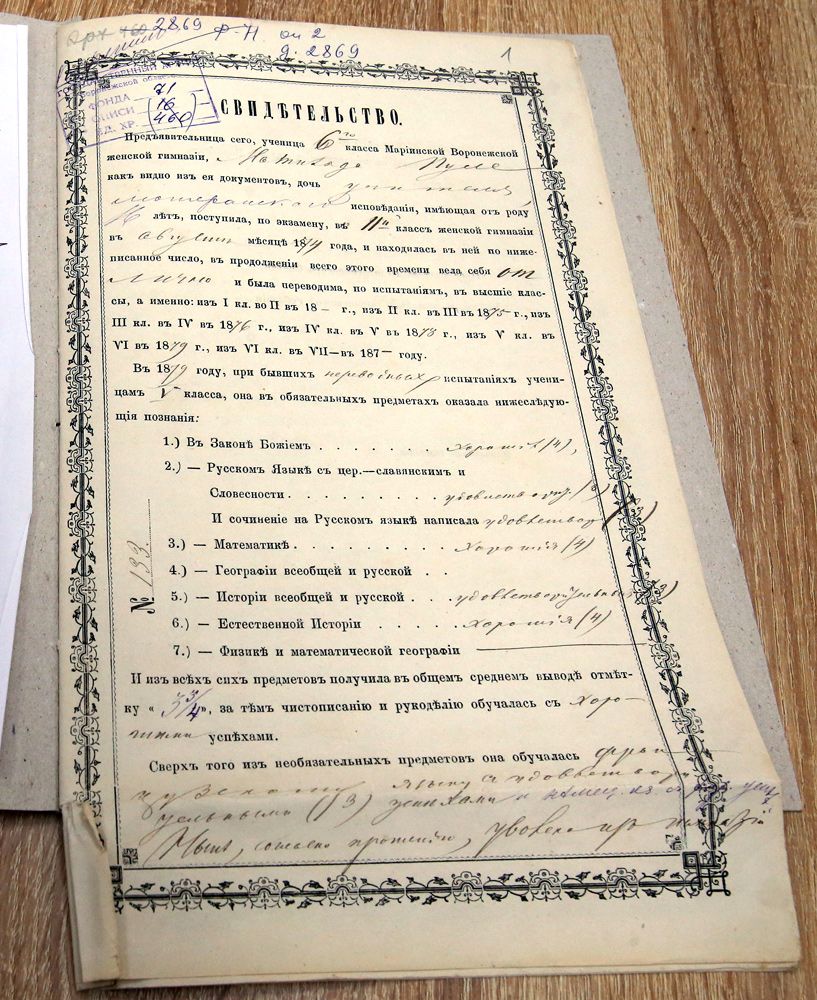 2869 Ф-Н. оп 2
д. 2869
1
71
ФОНДА
16
ОПИСИ
460
ЕД. ХР.
СВИДѢТЕЛЬСТВО.
Предъявительница сего, ученица 6го класса Маріинской Воронежской
женской гимназіи, Матильда
какъ видно изъ ея документовъ, дочь учителя
лютеранскаго исповѣданія, имѣющая отъ роду
лѣтъ, поступила, по экзамену, въ IIй классъ женской гимназіи
въ августѣ мѣсяцѣ 1874 года, и находилась въ ней по ниже-
писанное число, въ продолженіи всего этого времени вела себя от
лично и была переводима, по испытаніямъ, въ высшіе клас-
сы, а именно: изъ I кл. во II въ 18- г., изъ II кл. въ III въ 1875 г., изъ
III кл. въ IV въ 1876 г., изъ IV кл. въ V въ 1878 г., изъ V кл. въ
VI въ 1879 г., изъ VI кл. въ VII—въ 187- году.
Въ 1879 году, при бывшихъ переводныхъ испытаніяхъ учени-
цамъ V класса, она въ обязательныхъ предметахъ оказала нижеслѣдую-
щія познанія:
1.) Въ Законѣ Божіемъ . . . . . . . хорошія (4),
2.) — Русскомъ Языкѣ съ цер.—славянскимъ и
Словесности . . . . . . . . (3)
И сочиненіе на Русскомъ языкѣ написала (3)
3.) — Математикѣ . . . . . . . . хорошія (4)
4.) — Географіи всеобщей и русской . .
5.) — Исторіи всеобщей и русской . . . удовлетворительныя (3)
6.) — Естественной Исторіи . . . . . хорошія (4)
7.) — Физикѣ и математической географіи
№ 133
И изъ всѣхъ сихъ предметовъ получила въ общемъ среднемъ выводѣ отмѣт-
ку « 3 3/4 », за тѣмъ чистописанію и рукодѣлію обучалась съ хоро-
шими успѣхами.
Сверхъ того изъ необязательныхъ предметовъ она обучалась фран
цузскому языку съ удовлетвори
тельными (3) успѣхами и
Нынѣ, согласно прошенію, уволена изъ гимназіи